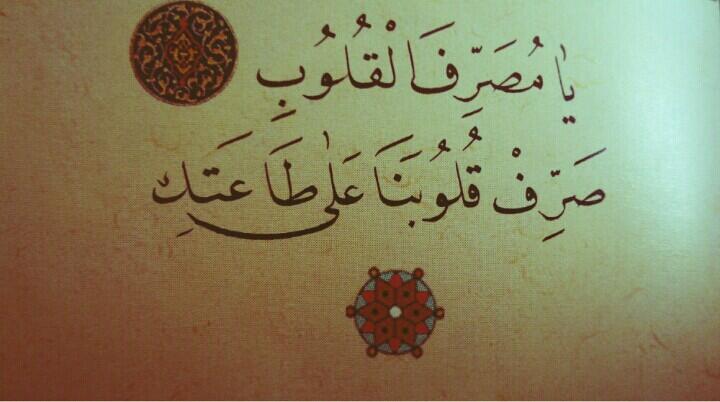 يَا مُصَرِّفَ الْقُلُوبِ
صَرِّفْ قُلُوبَنَا عَلَى طَاعَتِكَ